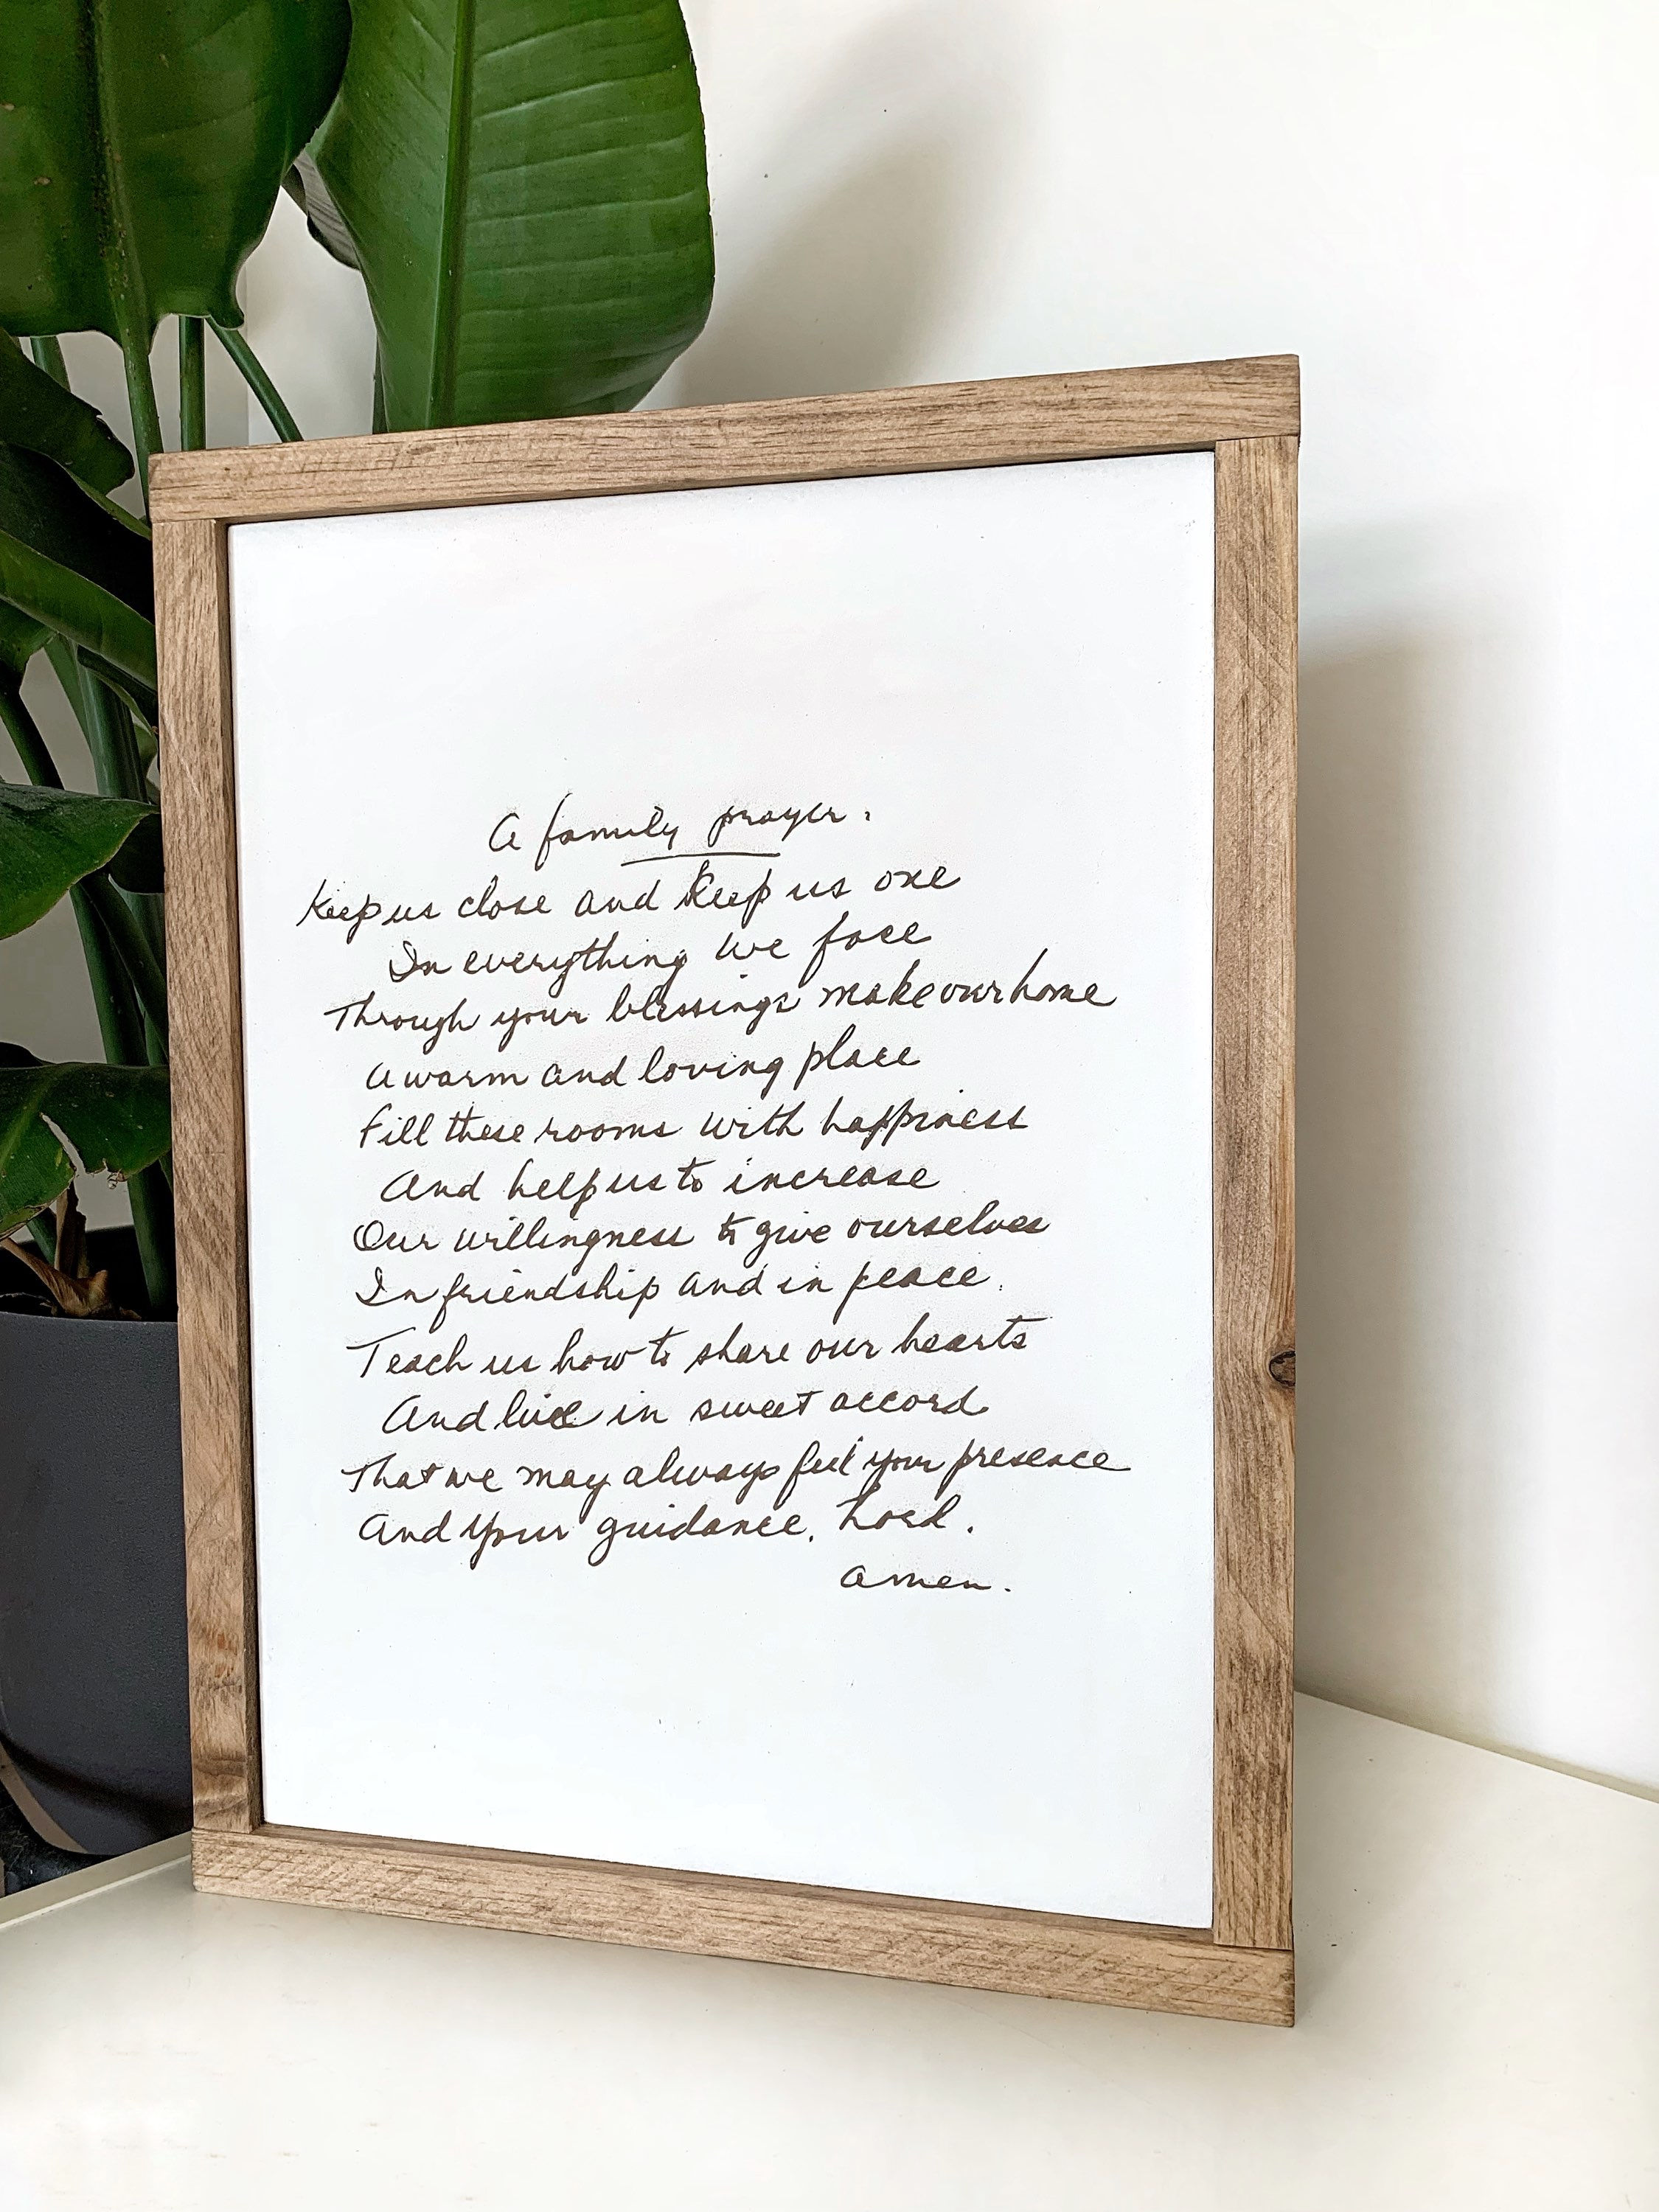 A family prayer.
Keep us close and keep us one
In everything we face
Through your blessings make our home
A warm and loving place
Fill these rooms with happiness
And help us to increase
Our willingness to give ourselves
In friendship and in peace.
Teach us how to share our hearts
And live in sweet accord
That we may always feel your presence
And your guidance, Lord.
Amen.